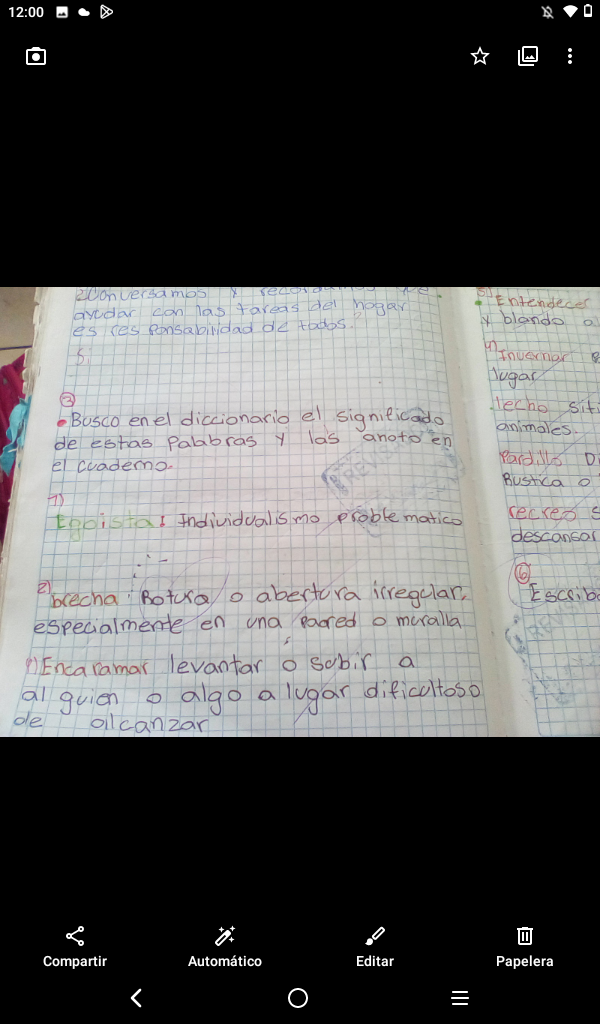 12:00
2)Conversamos y
ayudar con las tareas del hogar
es responsabilidad de todos.
5.
3
• Busco en el diccionario el significado
de estas Palabras y las anoto en
el cuaderno.
REVIS
1)
Egoista: Individualismo problematico
2)
brecha: Rotura o abertura irregular,
especialmente en una Paared o muralla
4) Encaramar levantar o subir a
al guien o algo a lugar dificultoso
de alcanzar
5)
• Entendecer
y blando a
Invernar
lugar
lecho siti
animales.
Pardillo
Rustica o
recreo s
descansar
6
Escribo
REVIS
Compartir
Automático
Editar
Papelera